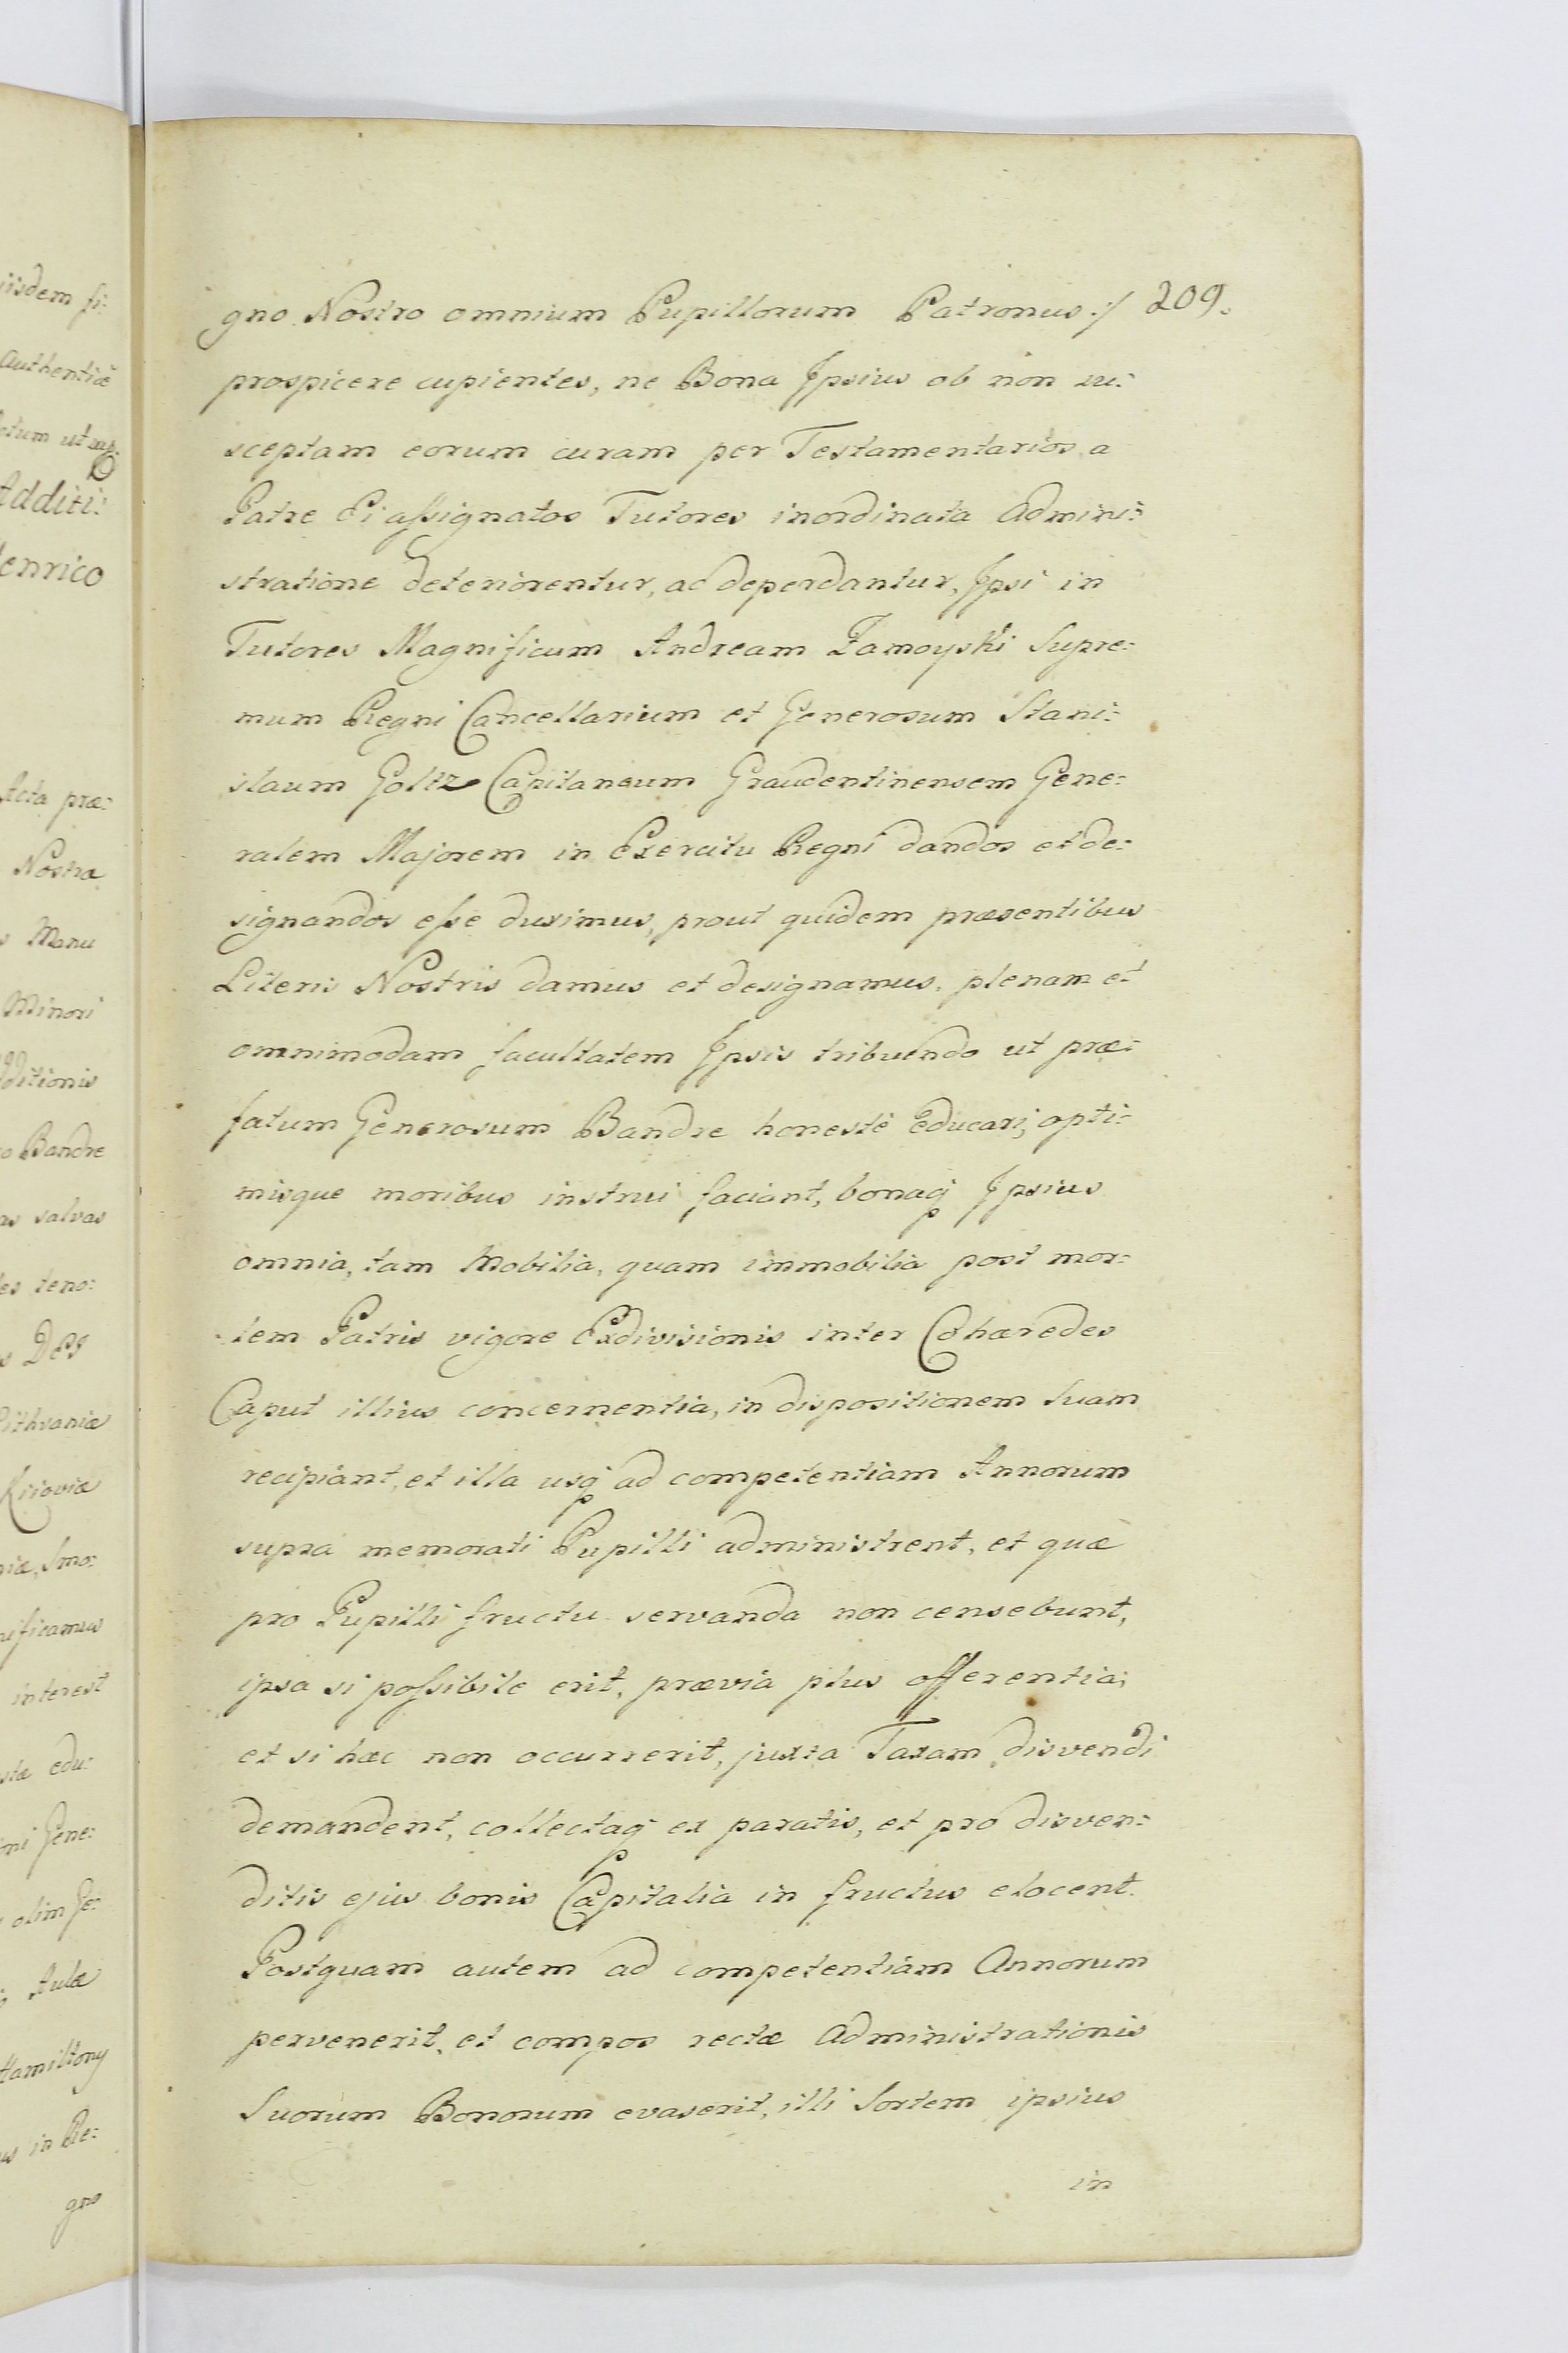 iisdem fi:
Authenticè
Additi:
Henrico
Acta præ:
Nostra
Manu
Minori
Additionis
Bandre
salvas
teno:
DEI
Lithvaniæ
Kiioviæ
Smo:
interest
edu:
Gene:
olim Ge:
Aulæ
Hamiltony
in Re:
gno
gno Nostro omnium Pupillorum Patronus :/ 209.
prospicere cupientes, ne Bona Ipsius ob non su:
sceptam eorum curam per Testamentarios a
Patre Ei assignatos Tutores inordinata Admini:
stratione deteriorentur, ac deperdantur, Ipsi in
Tutores Magnificum Andream Zamoyski Supre:
mum Regni Cancellarium et Generosum Stani:
slaum Goltz Capitaneum Graudentinensem Gene:
ralem Majorem in Exercitu Regni dandos et de:
signandos esse duximus, prout quidem præsentibus
Literis Nostris damus et designamus, plenam et
omnimodam facultatem Ipsis tribuendo ut præ:
fatum Generosum Bandre honestè Educari, opti:
misque moribus instrui faciant, bonaq Ipsius
omnia, tam Mobilia, quam immobilia post mor:
tem Patris vigore Exdivisionis inter Cohæredes
Caput illius concernentia, in dispositionem Suam
recipiant, et illa usq ad competentiam Annorum
supra memorati Pupilli administrent, et quæ
pro Pupilli fructu servanda non censebunt,
ipsa si possibile erit, prævia plus offerentia;
et si hæc non occurrerit, juxta Taxam disvendi
demandent, collectaq ex paratis, et pro disven:
ditis ejus bonis Capitalia in fructus elocent.
Postquam autem ad competentiam Annorum
pervenerit, et compos rectæ Administrationis
Suorum Bonorum evaserit, illi Sortem ipsius
in